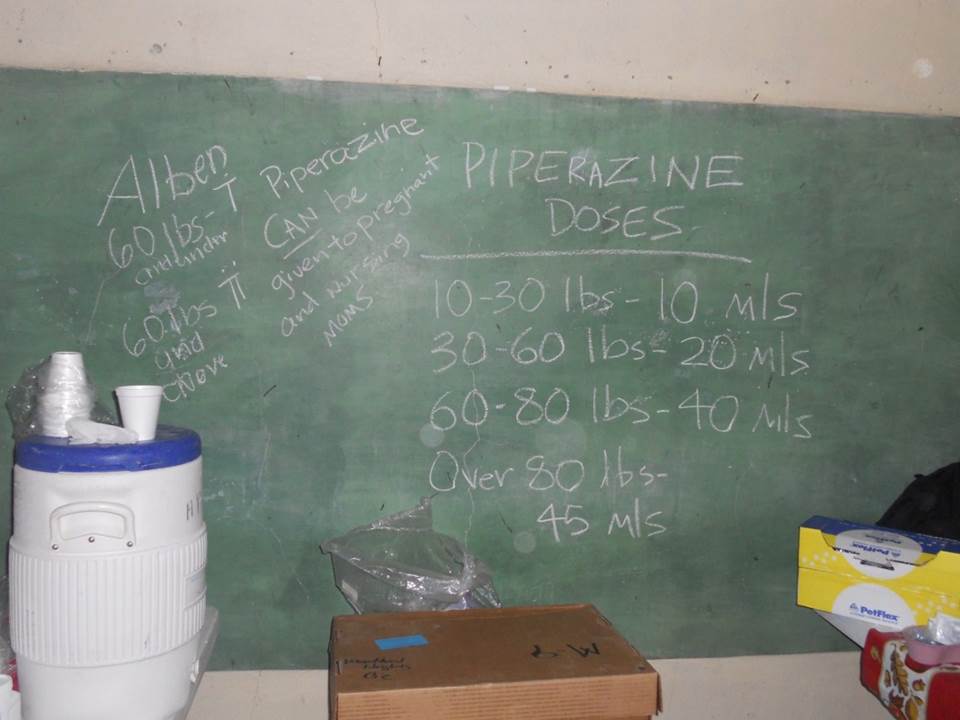 Alben
60 lbs - T
and under
60 lbs TT
and
above
Piperazine
CAN be
given to pregnant
and nursing
moms
PIPERAZINE
DOSES
10-30 lbs - 10 mls
30-60 lbs - 20 mls
60-80 lbs - 40 mls
Over 80 lbs-
45 mls
PetFlex
PetFlex